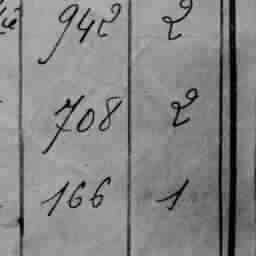 942 2
708 2
166 1